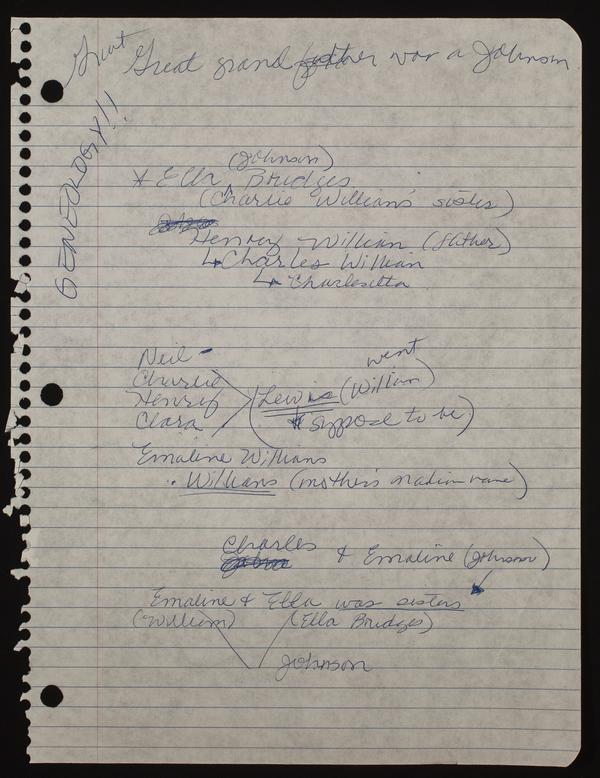 Great
Great grand father was a Johnson
GENEOLOGY!!
(Johnson)
* Ella ^ Bridges
(Charlie William's sister)
Henrey William (father)
↳ Charles William
↳ Charlesetta
Neil -
Charlie
went
Henrey
Lewis (William)
Clara
suppose to be)
Emaline Williams
.. Williams (mother's madien name)
Charles
& Emaline (Johnson)
Emaline & Ella was sisters
(William) (Ella Bridges)
Johnson